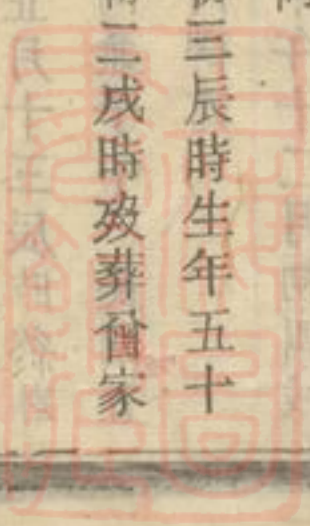 三辰時生年五十
二戌時殁葬曾家